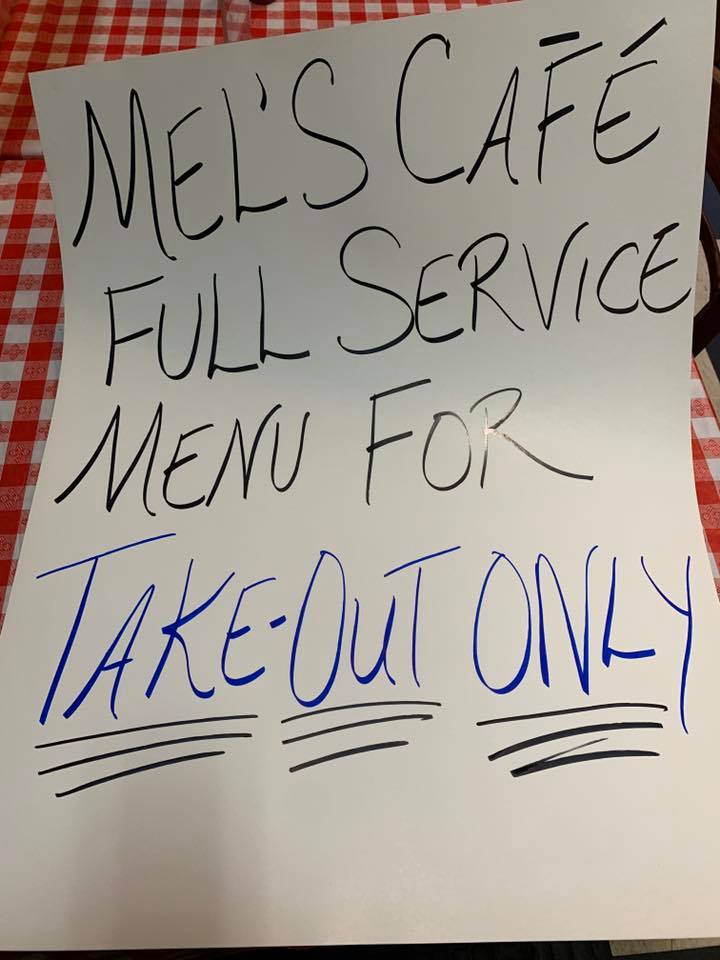 MEL'S CAFÉ
FULL SERVICE
MENU FOR
TAKE-OUT ONLY